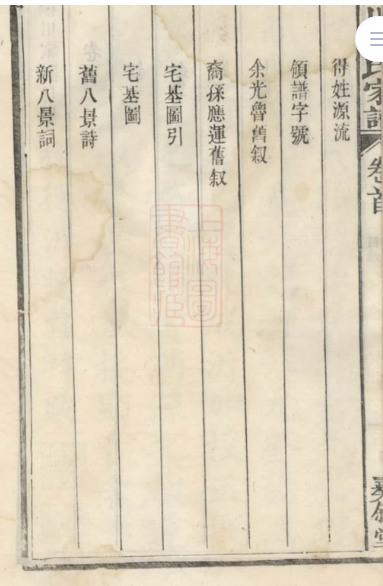 氏家譜 卷首
得姓源流
領譜字號
余光魯舊叙
裔孫應運舊叙
宅基圖引
宅基圖
舊八景詩
新八景詞
上海圖書館藏